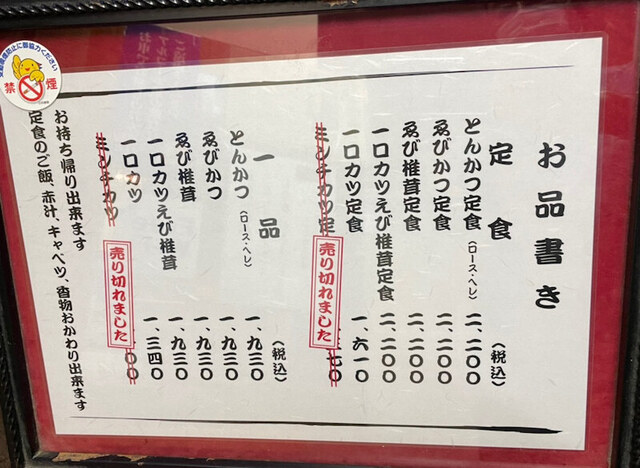 お品書き
定食 （税込）
とんかつ定食（ロース・ヘレ） 二、二〇〇
ゑびかつ定食 二、二〇〇
ゑび椎茸定食 二、二〇〇
一口カツえび椎茸定食 二、二〇〇
一口カツ定食 一、六一〇
ミンチカツ定 売り切れました 七〇
一品 （税込）
とんかつ（ロース・ヘレ） 一、九三〇
ゑびかつ 一、九三〇
ゑび椎茸 一、九三〇
一口カツえび椎茸 一、九三〇
一口カツ 一、三四〇
ミンチカツ 売り切れました 〇〇
お持ち帰り出来ます
定食のご飯、赤汁、キャベツ、香物おかわり出来ます
受動喫煙防止にご協力ください
禁煙